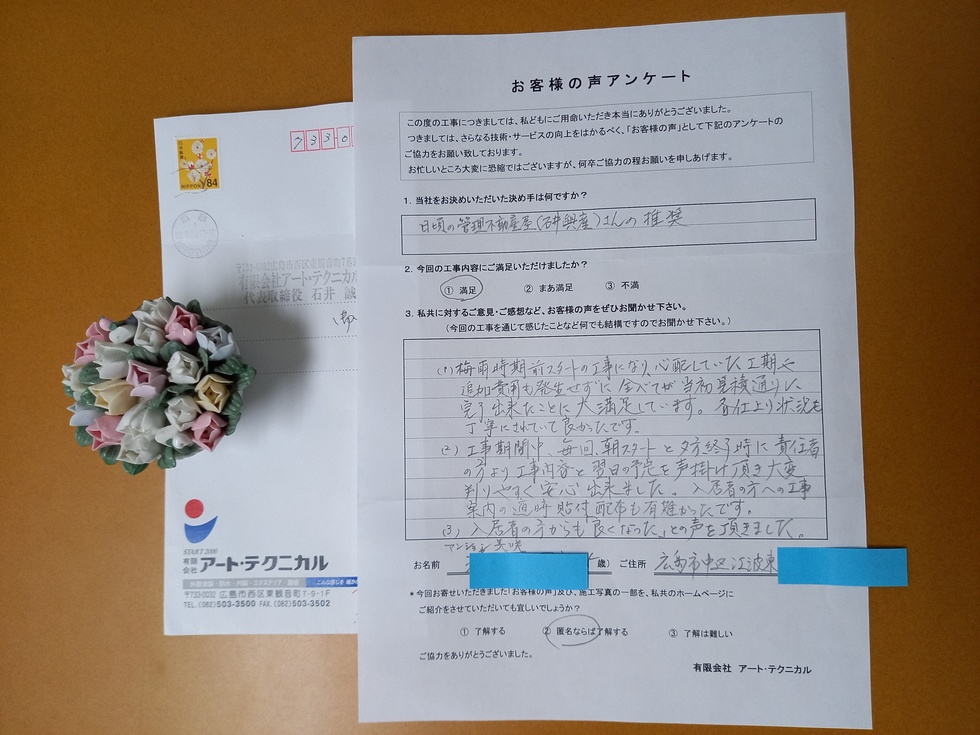 お客様の声アンケート
この度の工事につきましては、私どもにご用命いただき本当にありがとうございました。
つきましては、さらなる技術・サービスの向上をはかるべく、「お客様の声」として下記のアンケートの
ご協力をお願い致しております。
お忙しいところ大変に恐縮ではございますが、何卒ご協力の程お願いを申しあげます。
1. 当社をお決めいただいた決め手は何ですか？
日頃の管理不動産屋(石井興産)さんの推奨
2. 今回の工事内容にご満足いただけましたか？
① 満足 ② まあ満足 ③ 不満
3. 私共に対するご意見・ご感想など、お客様の声をぜひお聞かせ下さい。
(今回の工事を通じて感じたことなど何でも結構ですのでお聞かせ下さい。)
(1) 梅雨時期前スタートの工事になり、心配していた工期や
追加費用も発生せずに全べてが当初見積通りに
完了出来たことに大満足しています。各仕上り状況も
丁寧にされていて良かったです。
(2) 工事期間中、毎回、朝スタートと夕方終了時に責任者
の方より工事内容と翌日の予定を声掛け頂き大変
判りやすく安心出来ました。入居者の方への工事
案内の適時貼付配布も有難かったです。
(3) 入居者の方からも良くなった、との声を頂きました。
お名前 歳) ご住所 広島市中区江波東
*今回お寄せいただきました「お客様の声」及び、施工写真の一部を、私共のホームページに
ご紹介をさせていただいても宜しいでしょうか？
① 了解する ② 匿名ならば了解する ③ 了解は難しい
ご協力をありがとうございました。
有限会社 アート・テクニカル
日本郵便
NIPPON 84
733-0
有限会社アート・テクニカル
代表取締役 石井 誠
START 2000
有限会社 アート・テクニカル
〒733-0032 広島市西区東観音町7-9-1F
TEL.(082)503-3500 FAX.(082)503-3502